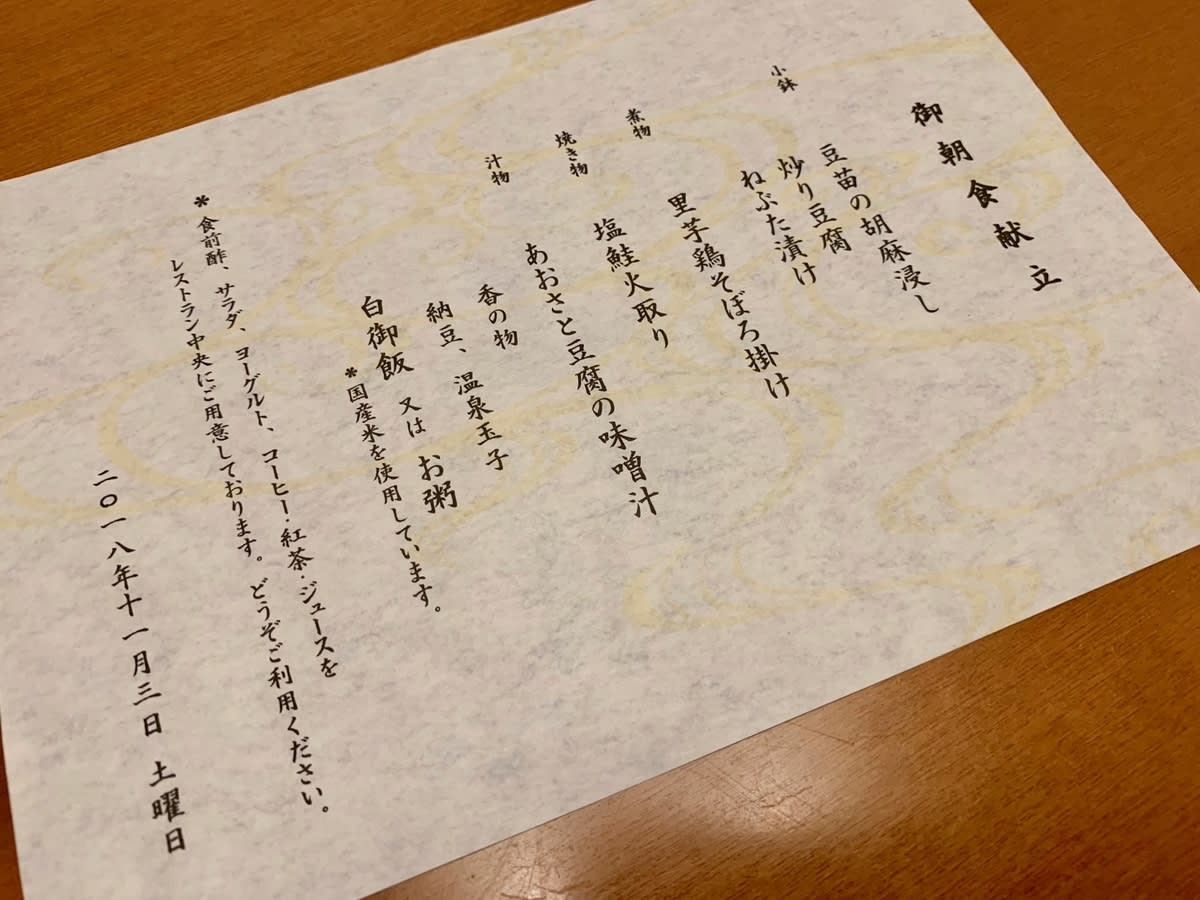 御朝食献立
小鉢
豆苗の胡麻浸し
炒り豆腐
ねぶた漬け
煮物
里芋鶏そぼろ掛け
焼き物
塩鮭火取り
汁物
あおさと豆腐の味噌汁
香の物
納豆、温泉玉子
白御飯 又は お粥
*国産米を使用しています。
*食前酢、サラダ、ヨーグルト、コーヒー・紅茶・ジュースを
レストラン中央にご用意しております。どうぞご利用ください。
二〇一八年十一月三日 土曜日